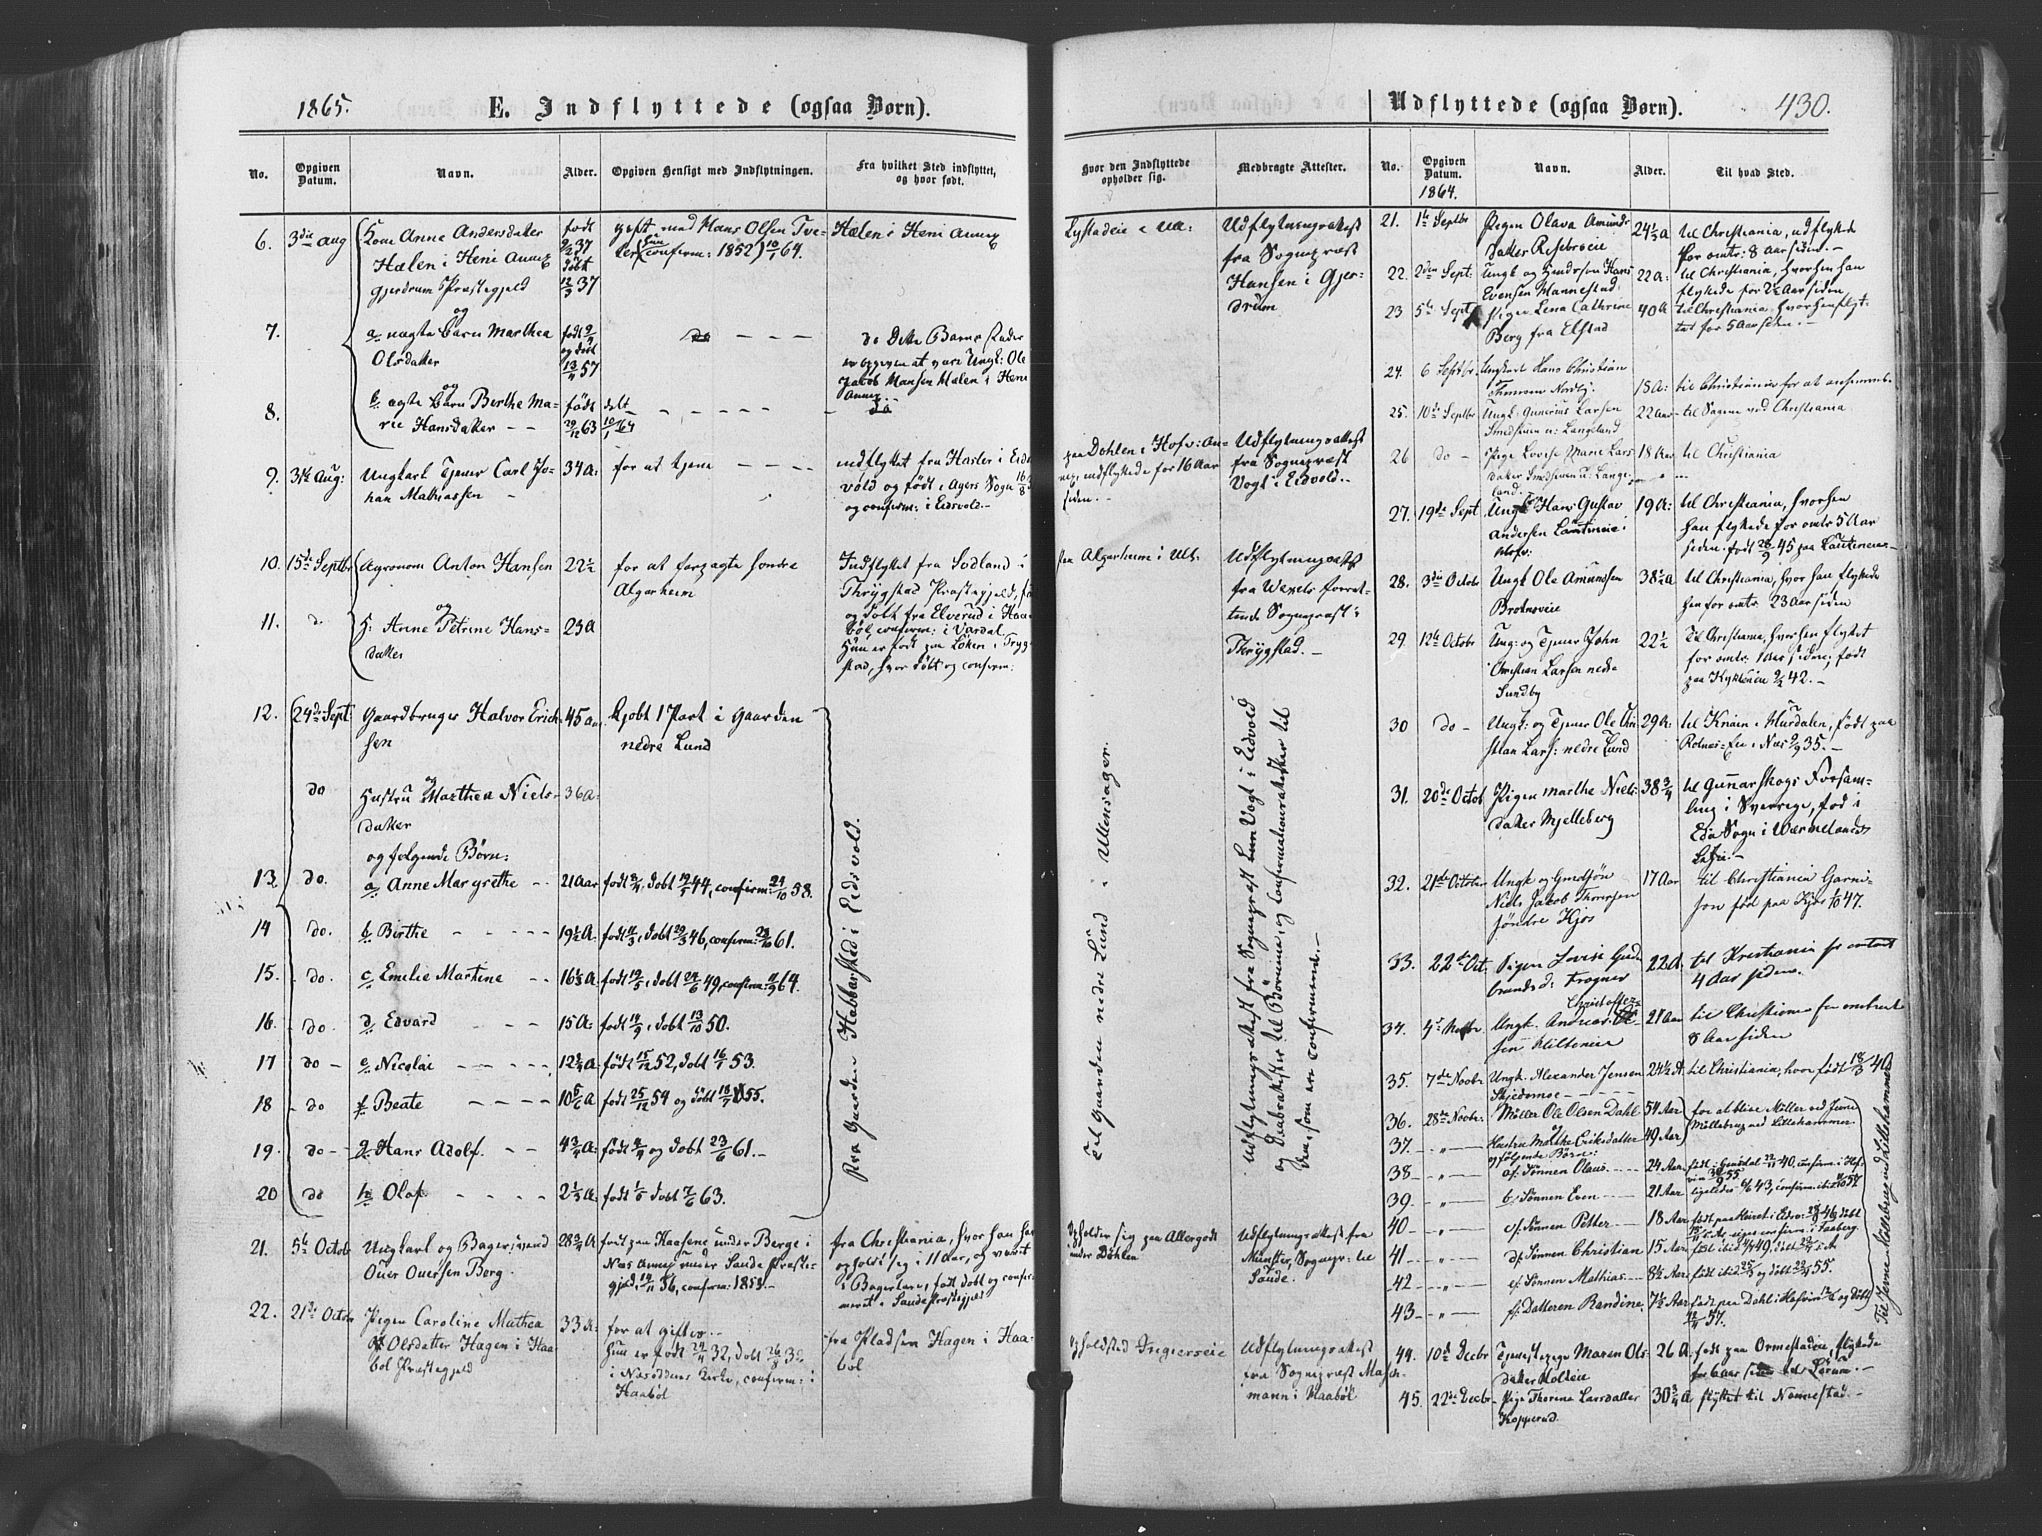 1865.
E. Indflyttede (ogsaa Børn).
No.
Opgiven Datum.
Navn.
Alder.
Opgiven Hensigt med Indflytningen.
Fra hvilket Sted indflyttet, og hvor født.
6. 3die Aug
Kone Anne Andersdatter
Hælen i Heni Annex
Gjerdrum Præstegjeld
og
født
2/2 37
døbt
12/3 37
gift med Hans Olsen
confirm: 1852) 10/1 64.
Hælen i Heni Annex
7.
a uægte Barn Marthea
Olsdatter
og
født 2/4
og døbt
13/4 57
do
do Dette Barns Fader
er opgiven at være Ungk: Ole
Jacob Hansen Hælen i Heni
Annex.
8.
b ægte Barn Berthe Ma-
rie Hansdatter
født
29/12 63
døbt
10/1 64
do
9. 31te Aug:
Ungkarl Tjener Carl Jo-
han Mathiassen
34 A:
for at tjene
indflyttet fra Hasler i Eids
vold og født i Agers Sogn
og confirm: i Eidsvold.-
10. 15de Septbr
Agronom Anton Hansen
og
22½
for at forpagte søndre
Algarheim
Indflyttet fra Sodland i
Thrygstad Præstegjeld, fø
og døbt fra Elverud i Haa
bøl confirm: i Vardal.
11. d
H: Anne Petrine Hans-
datter
23 A
Hun er født paa Løken i Tryg
stad, hvor døbt og confirm:
12. 24de Sept.
Gaardbruger Halvor Erich
sen
45 aar
kjøbt 1 Part i Gaarden
nedre Lund
do
og
Hustru Marthea Niels-
datter
og følgende Børn:
36 A:
13. do.
a Anne Margrethe
21 Aar
født 8/4, døbt 19/5 44, confirm: 24/10 58.
14 do.
b Birthe
19½ A:
født 11/3, døbt 29/3 46, confirm: 23/6 61.
15. do.
c Emelie Martine
16⅓ A:
født 19/5, døbt 24/6 49, confirm: 11/9 64.
16. do
d Edvard
15 A:
født 14/9, døbt 13/10 50.
17 do
e Nicolai
12¾ A
født 15/12 52, døbt 16/1 53.
18 do
f Beate
10 5/6 A
født 25/12 54 og døbt 18/7 55.
19. do
g Hans Adolf.
4¾ A:
født 4/4 og døbt 23/6 61.
20 do
h Olaf
2⅓ A:
født 1/5 døbt 7/6 63.
Fra Gaarden Habbarstad i Eidsvold.
21. 5te Octob
Ungkarl og Bagersvend
Over Oversen Berg
28¾ A
født paa Haasene under Berge i
Næs Annex under Sande Præste-
gjeld 19/11 36, confirm: 1853.
fra Christiania, hvor han har
opholdt sig i 11 Aar, og været
i Bagerlære, født døbt og confir-
meret i Sande Præstegjeld
22. 21de Octobr
Pigen Caroline Mathea
Olsdatter Hagen i Haa
bøl Præstegjeld
33 A:
for at giftes.
hun er født 24/4 32, døbt 26/8 32
i Næsoddens Kirke, confirm: i
Haabøl
fra Pladsen Hagen i Haa-
bøl
Hvor den Indflyttede opholder sig.
Medbragte Attester.
Lystadeie i Ull:
Udflytningsattest
fra Sognepræst
Hansen i Gjer-
drum
paa Dohlen i Hofv: An-
nex, indflyttede for 16 Aar
siden.
Udflytningsattest
fra Sognepræst
Vogt i Eidvold.
paa Algarheim i Ull.
Udflytningsattest
fra Wexels forret-
tende Sognepræst i
Thrygstad.
Til Gaarden nedre Lund i Ullensager.
Udflytningsattest fra Sognepræst Vogt i Eidvold
og Daabsattester til Børnene, og Confirmationsattester til
dem, som ere confirmerede.
opholder sig paa Allergodt
under Döhlen
Udflytningsattest fra
Münster, Sognepr: til
Sande.
Opholdsted Ingierseie
Udflytningsattest
fra Sognepræst Masch-
mann i Haabøl
Udflyttede (ogsaa Børn).
430.
No.
Opgiven Datum.
1864.
Navn.
Alder.
Til hvad Sted.
21. 1te Septbr
Pigen Olava Amunds
datter Risebroeie
24½ a
til Christiania, udflyttede
for omtr: 8 Aar siden.
22. 2den Sept:
Ungk og Hans
Evensen Mannestad
22 a:
til Christiania, hvorhen han
flyttede for 2½ Aar siden
23 5te Sept
Pigen Lena Cathrine
Berg fra Elstad
40 A
til Christiania, hvorhen flyt-
tet for 5 Aar siden.
24. 6 Septbr.
Ungkarl Hans Christian
Thoresen Nordby
18 A:
til Christiania for at
25. 10de Septbr
Ungk: Gunerius Larsen
Smedstuen u: Langeland
22 aar
til Sagene ved Christiania
26 do
Pige Lovise Marie Lars
datter Smedstuen u. Lange
land.
18 Aar
til Christiania
27. 19de Sept
Ungk Hans Gustav
Andersen Lauteneie i
Hofv:
19 A:
til Christiania, hvorhen
han flyttede for omtr 5 Aar
siden. født 28/9 45 paa Lauteneie
28. 3die Octobr
Ungk Ole Amundsen
Brotneeie
38½ a
til Christiania, hvor han flyttede
hen for omtr. 23 Aar siden
29. 12te Octobr
Ung: og Tjener John
Christian Larsen nedre
Sundby
22½
til Christiania, hvorhen flyttet
for omtr. 1 Aar siden; født
paa 9/2 42.
30 do
Ungk: og Tjener Ole Chri
stian Lars: nedre Lund
29 A:
til Knain i Hurdalen, født paa
i Næs 9/9 35.
31. 20de Octob
Pigen Marthe Niels
datter Mjelleberg
38¾
til Gunnarskogs Forsam-
ling i Sverrige, fød i
Eda Sogn i Wærmelands
Lehn.
32. 21de Octobr
Ungk og
Niels Jacob Thomesen
søndre Hjos
17 Aar
til Christiania Garni-
son
33. 22de Oct.
Pigen Lovise Gud
brandsd: Frogner
22 A.
til Kristiania for omtrent
4 Aar siden.
34.
Ungk. Andreas Christoffer-
sen Kilteneie
21 Aar
til Christiania for omtrent
8 Aar siden
35. 7de Novbr
Ungk. Alexander Jensen
Skjedsmoe
24½ A
til Christiania, hvor født 18/3 40
36. 28de Novbr.
Møller Ole Olsen Dahl
54 Aar
for at blive Møller ved Jevne
Møllebrug ved Lillehammer.
37.
og
Hustru Marthe Eriksdatter
og følgende Børn:
49 Aar
38
a/ Sønnen Olaus
24 Aar
39.
b/ Sønnen Even
21 Aar
40
c/ Sønnen Petter
18 Aar
41
d/ Sønnen Christian
15 Aar
42
e/ Sønnen Mathias
8½ Aar
43
f/ Datteren Randine
7½ Aar
Til Jevne Møllebrug ved Lillehammer
44. 10de Decbr
Tjenestepige Maren Ols
datter Holteie
26 A.
født paa Ormestadeie, flyttede
for 6 aar siden til Sørum.
45. 22de Decbr
Pige Thorine Larsdatter
Kopperud
30¾ A
flyttet til Nannestad